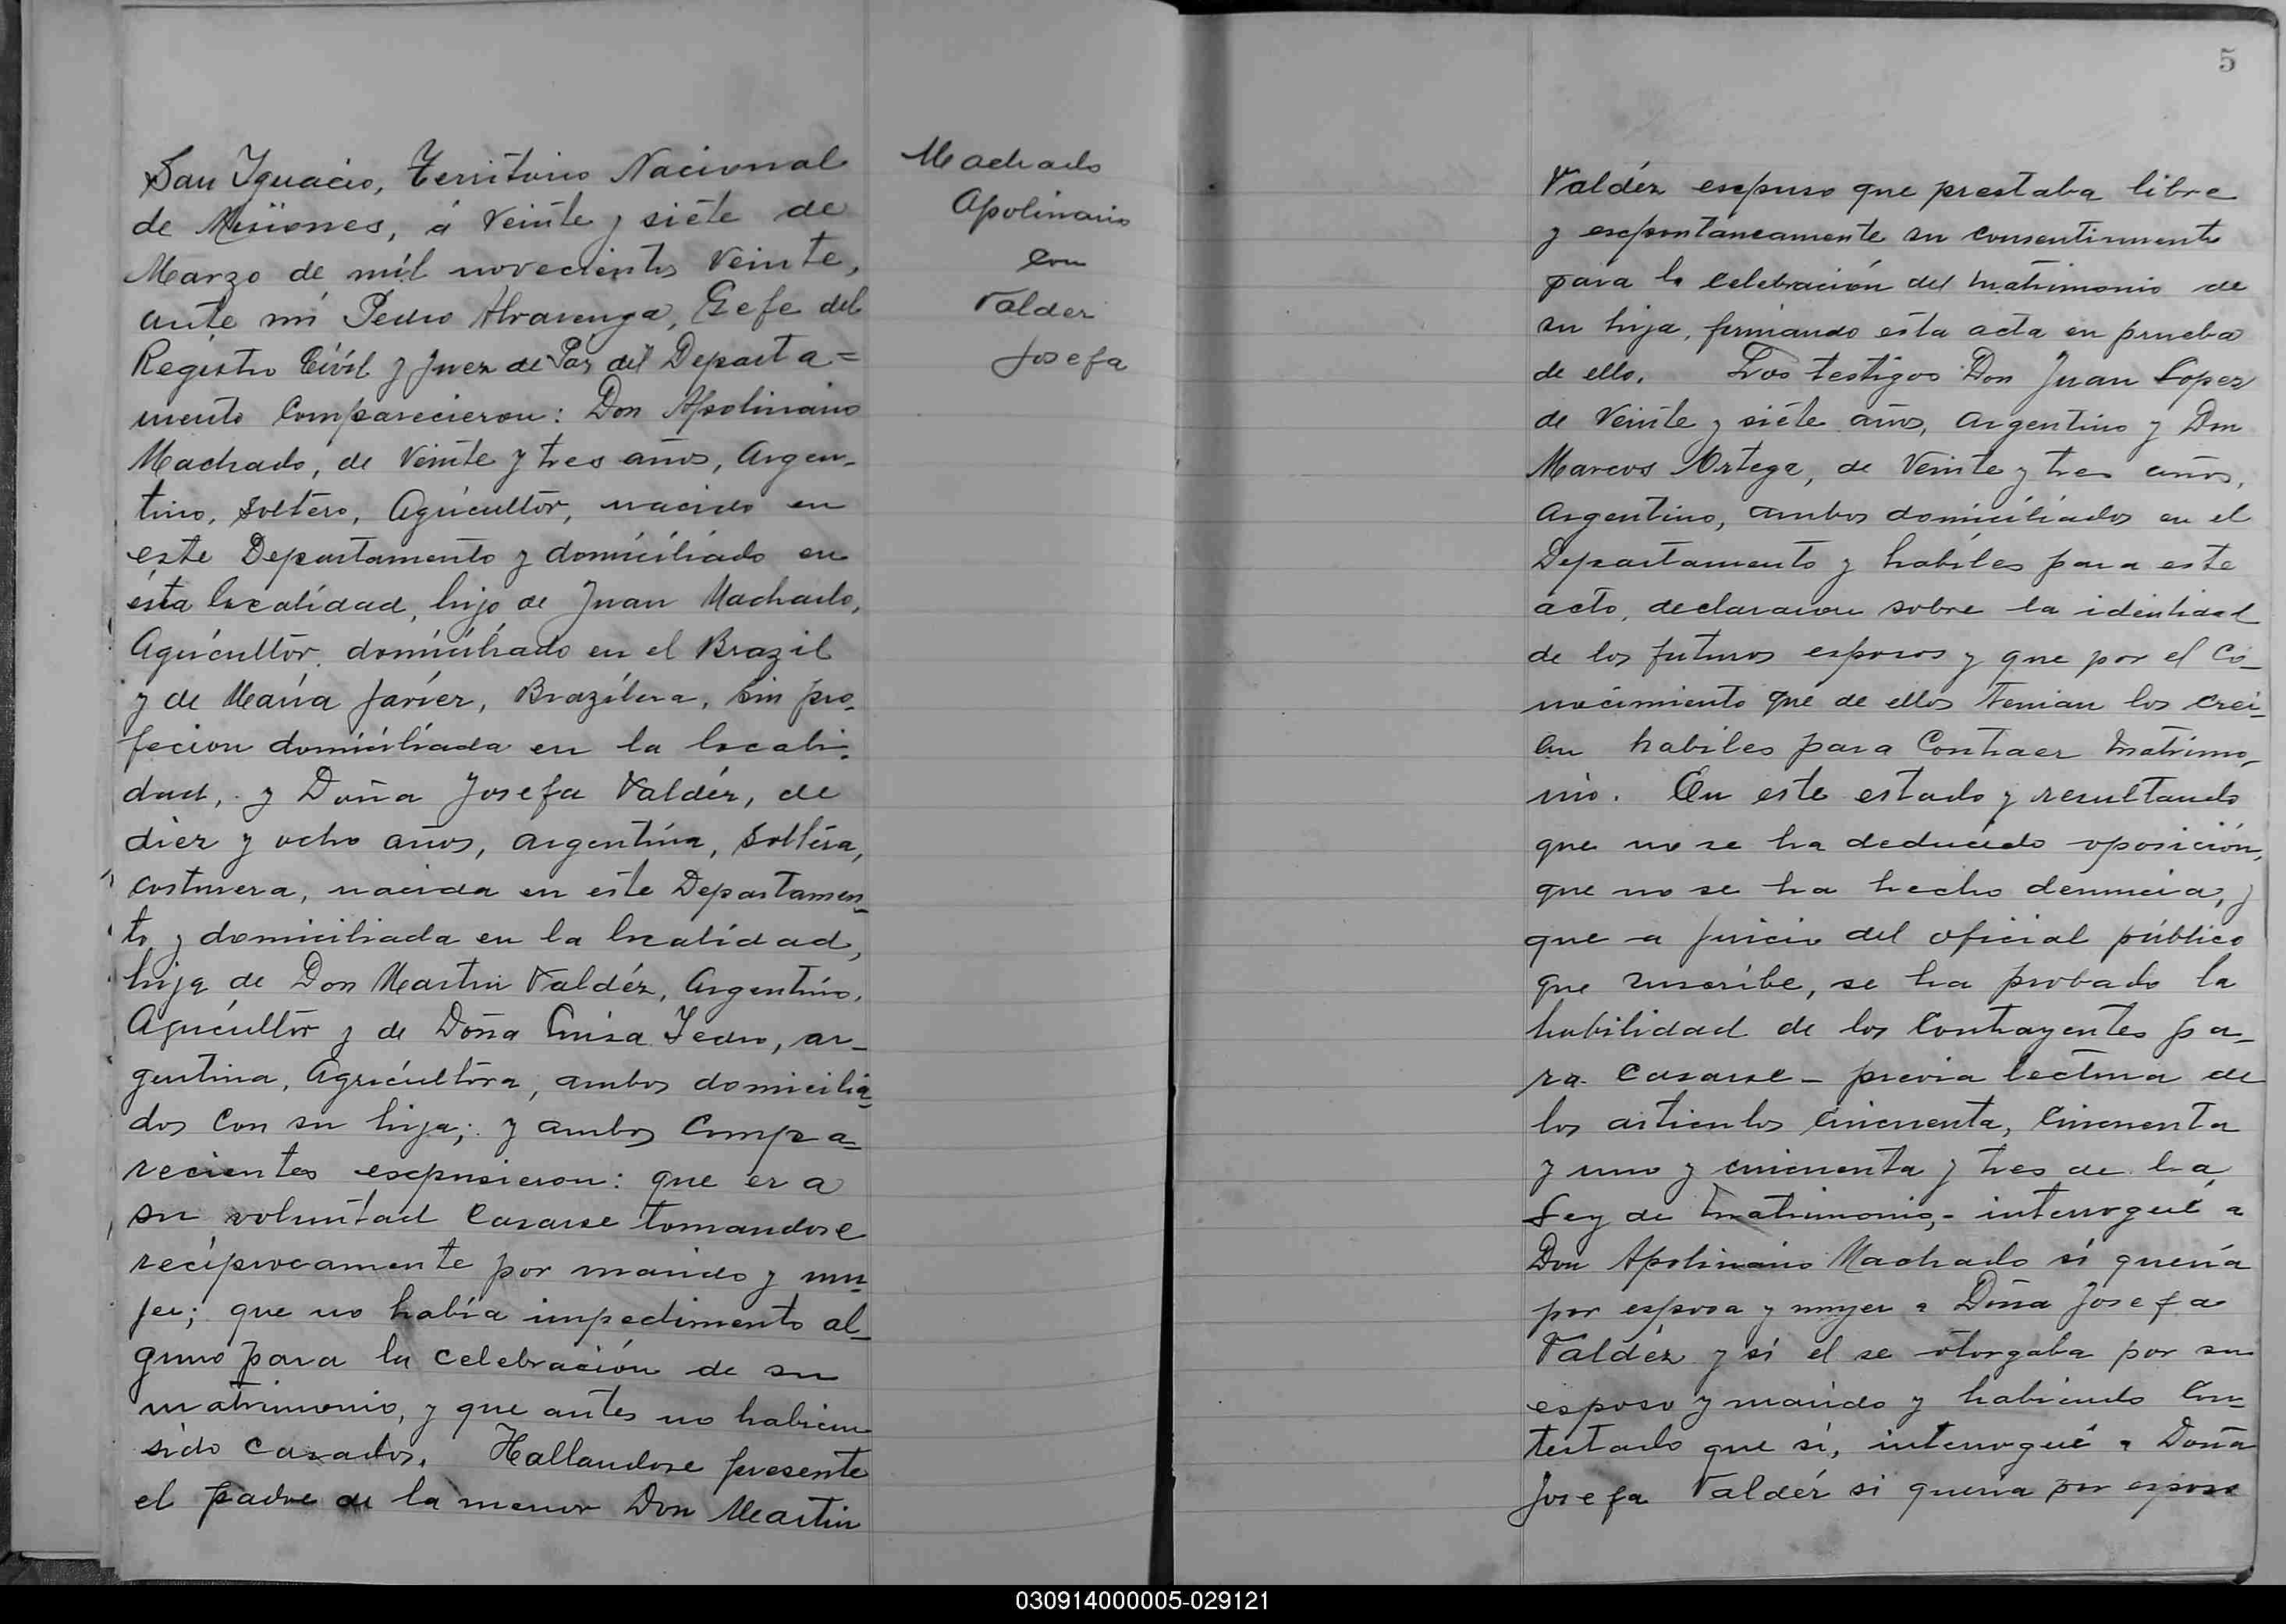 San Ygnacio, Territorio Nacional
de Misiones, á veinte y siete de
Marzo de mil novecientos veinte,
ante mi Pedro Alvarenga, Gefe del
Registro Civil y Juez de Paz del Departa=
mento comparecieron: Don Apolinario
Machado, de veinte y tres años, Argen-
tino, soltero, Agricultor, nacido en
este Departamento y domiciliado en
esta localidad, hijo de Juan Machado,
Agricultor, domiciliado en el Brazil
y de María Javier, Brazilera, sin pro-
fecion domiciliada en la locali-
dad, y Doña Josefa Valdéz, de
diez y ocho años, argentina, soltera,
costurera, nacida en este Departamen-
to y domiciliada en la localidad,
hija de Don Martin Valdéz, Argentino,
Agricultor y de Doña Luisa, ar-
gentina, Agricultora, ambos domicilia-
dos con su hija; y ambos compa-
recientes escpusieron: que era
su voluntad casarse tomandose
recíprocamente por marido y mu-
jer; que no había impedimento al-
guno para la celebración de su
matrimonio, y que antes no habian
sido casados. Hallandose presente
el padre de la menor Don Martin
Machado
Apolinario
con
Valdez
Josefa
5
Valdéz escpuso que prestaba libre
y escpontáneamente su consentimiento
para la celebración del matrimonio de
su hija, firmando esta acta en prueba
de ello. Los testigos Don Juan Lopez
de veinte y siete años, argentino y Don
Marcos Ortega, de veinte y tres años,
Argentino, ambos domiciliados en el
Departamento y habiles para este
acto, declararon sobre la identidad
de los futuros esposos y que por el co-
nocimiento que de ellos tenian los crei-
an habiles para contraer matrimo-
nio. En este estado y resultando
que no se ha deducido oposición,
que no se ha hecho denuncia, y
que a juicio del oficial público
que suscribe, se ha probado la
habilidad de los contrayentes pa-
ra casarse - previa lectura de
los articulos cincuenta, cincuenta
y uno y cincuenta y tres de la
Ley de matrimonio,- interrogué a
Don Apolinario Machado si quería
por esposa y mujer a Doña Josefa
Valdéz y si el se otorgaba por su
esposo y marido y habiendo con-
testado que si, interrogué a Doña
Josefa Valdéz si queria por esposo
030914000005-029121